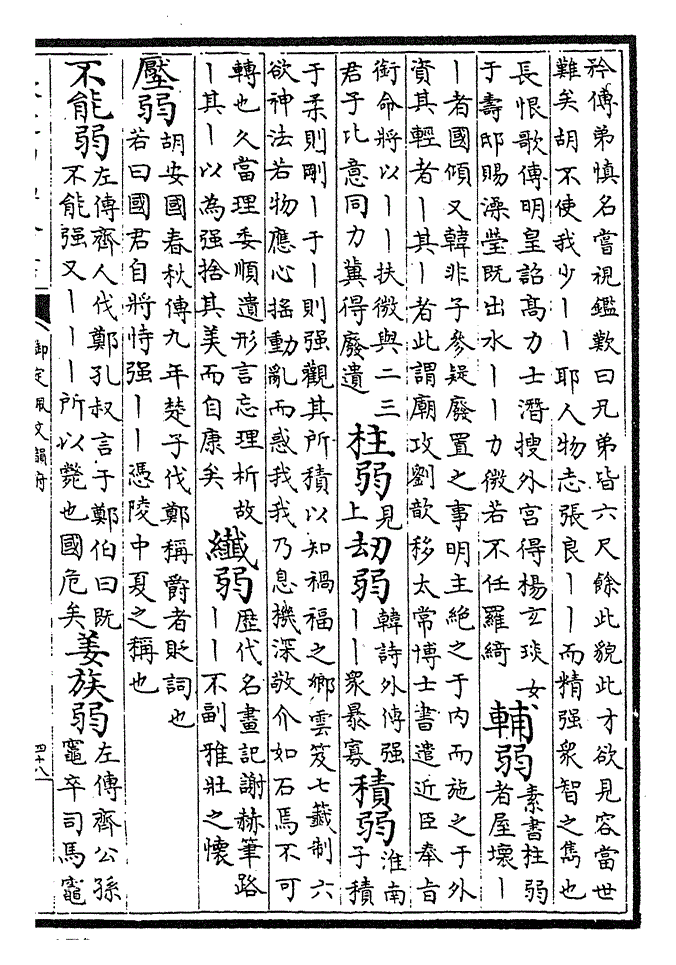 矜傅弟慎名嘗視鑑歎曰兄弟皆六尺餘此貌此才欲見容當世
難矣胡不使我少丨丨耶人物志張良丨丨而精强衆智之雋也
長恨歌傳明皇詔高力士潛搜外宮得楊玄琰女
于壽邸賜澡瑩既出水丨丨力微若不任羅綺
輔弱
素書柱弱
者屋壞丨
丨者國傾又韓非子參疑廢置之事明主絶之于内而施之于外
資其輕者丨其丨者此謂廟攻劉歆移太常博士書遣近臣奉旨
銜命將以丨丨扶微與二三
君子比意同力冀得廢遺
柱弱
見
上
刧弱
韓詩外傳强
丨丨衆暴寡
積弱
淮南
子積
于柔則剛丨于丨則强觀其所積以知禍福之鄉雲笈七籤制六
欲神法若物應心搖動亂而惑我我乃息機深敬介如石焉不可
轉也久當理委順遺形言忘理析故
丨其丨以為强捨其美而自康矣
纎弱
歴代名畫記謝赫筆路
丨丨不副雅壯之懷
壓弱
胡安國春秋傳九年楚子伐鄭稱爵者貶詞也
若曰國君自將恃强丨丨憑陵中夏之稱也
不能弱
左傳齊人伐鄭孔叔言于鄭伯曰既
不能强又丨丨丨所以斃也國危矣
姜族弱
左傳齊公孫
竈卒司馬竈
御定佩文韻府
四十八